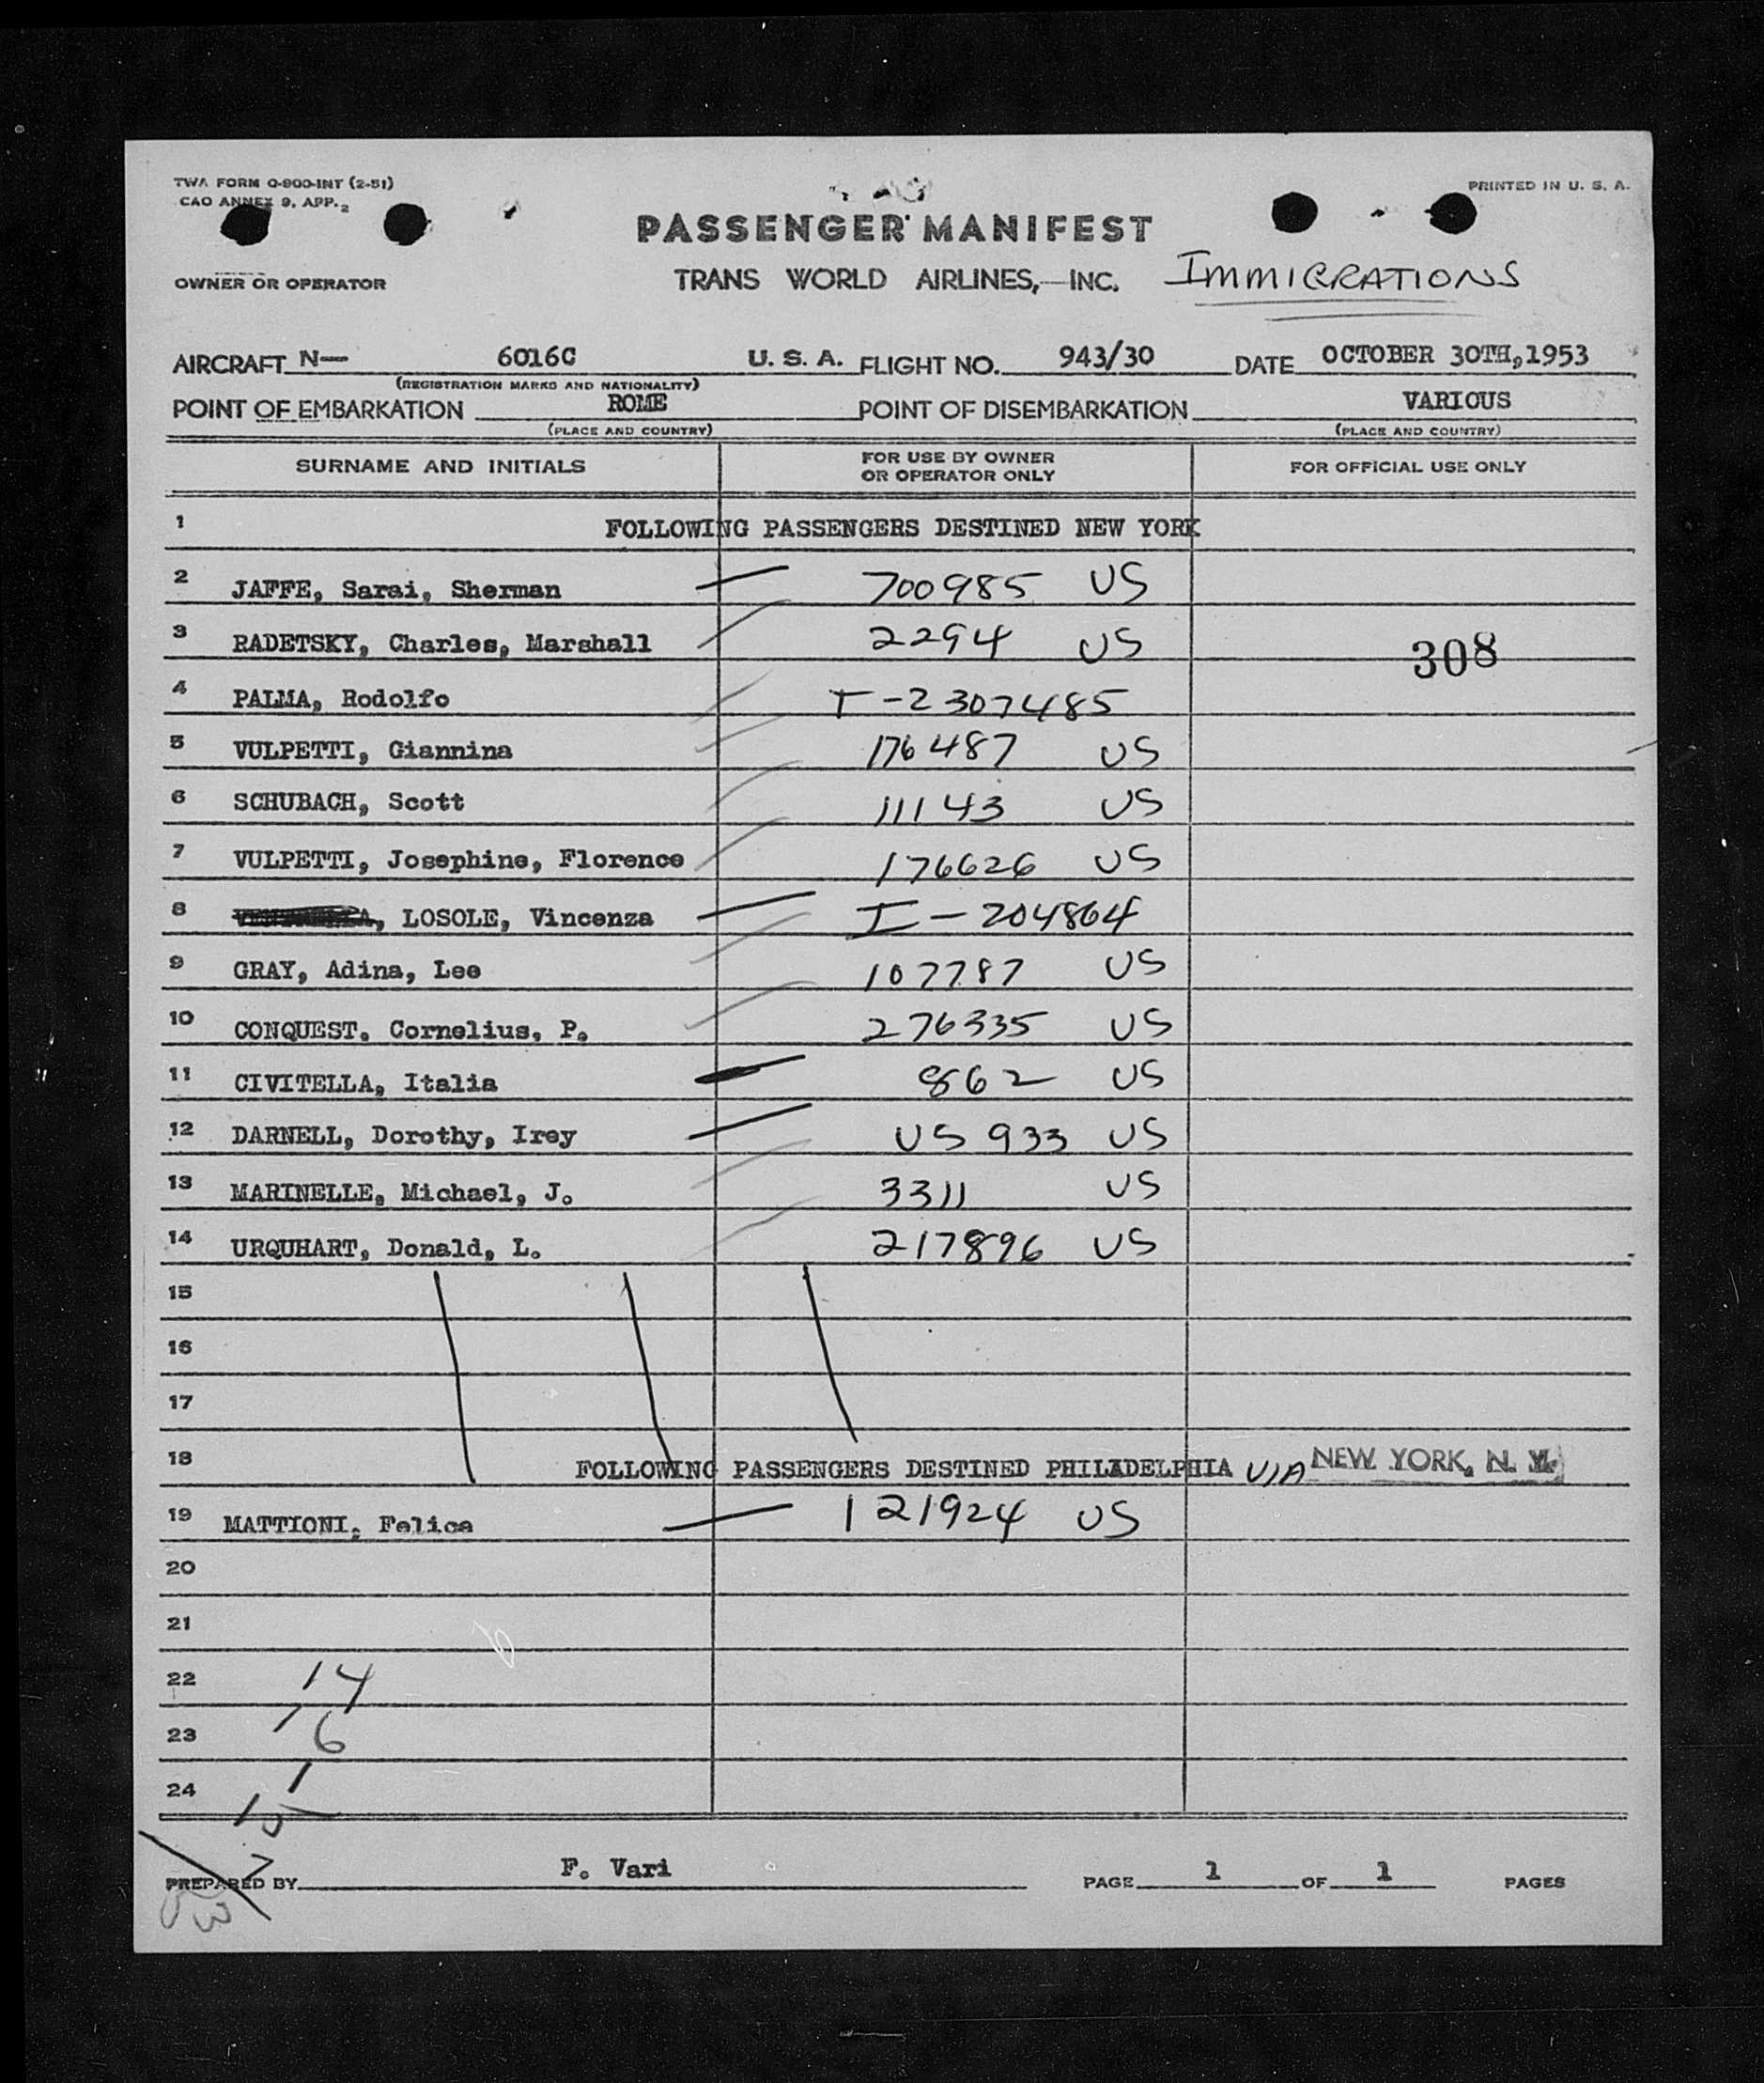 TWA FORM O-900-INT (2-51)
CAO ANNEX 9, APP. 2
PRINTED IN U. S. A.
PASSENGER MANIFEST
OWNER OR OPERATOR
TRANS WORLD AIRLINES, INC. IMMIGRATIONS
AIRCRAFT N— 6016C U. S. A. FLIGHT NO. 943/30 DATE OCTOBER 30TH, 1953
(REGISTRATION MARKS AND NATIONALITY)
POINT OF EMBARKATION ROME POINT OF DISEMBARKATION VARIOUS
(PLACE AND COUNTRY) (PLACE AND COUNTRY)
SURNAME AND INITIALS FOR USE BY OWNER OR OPERATOR ONLY FOR OFFICIAL USE ONLY
1 FOLLOWING PASSENGERS DESTINED NEW YORK
2 JAFFE, Sarai, Sherman 700985 US
3 RADETSKY, Charles, Marshall 2294 US 308
4 PALMA, Rodolfo T-2307485
5 VULPETTI, Giannina 176487 US
6 SCHUBACH, Scott 11143 US
7 VULPETTI, Josephine, Florence 176626 US
8 LOSOLE, Vincenza I-204864
9 GRAY, Adina, Lee 107787 US
10 CONQUEST, Cornelius, P. 276335 US
11 CIVITELLA, Italia 862 US
12 DARNELL, Dorothy, Irey US 933 US
13 MARINELLE, Michael, J. 3311 US
14 URQUHART, Donald, L. 217896 US
15
16
17
18 FOLLOWING PASSENGERS DESTINED PHILADELPHIA VIA NEW YORK, N. Y.
19 MATTIONI, Felice 121924 US
20
21
22 14
23 6
24 1
PREPARED BY F. Vari PAGE 1 OF 1 PAGES